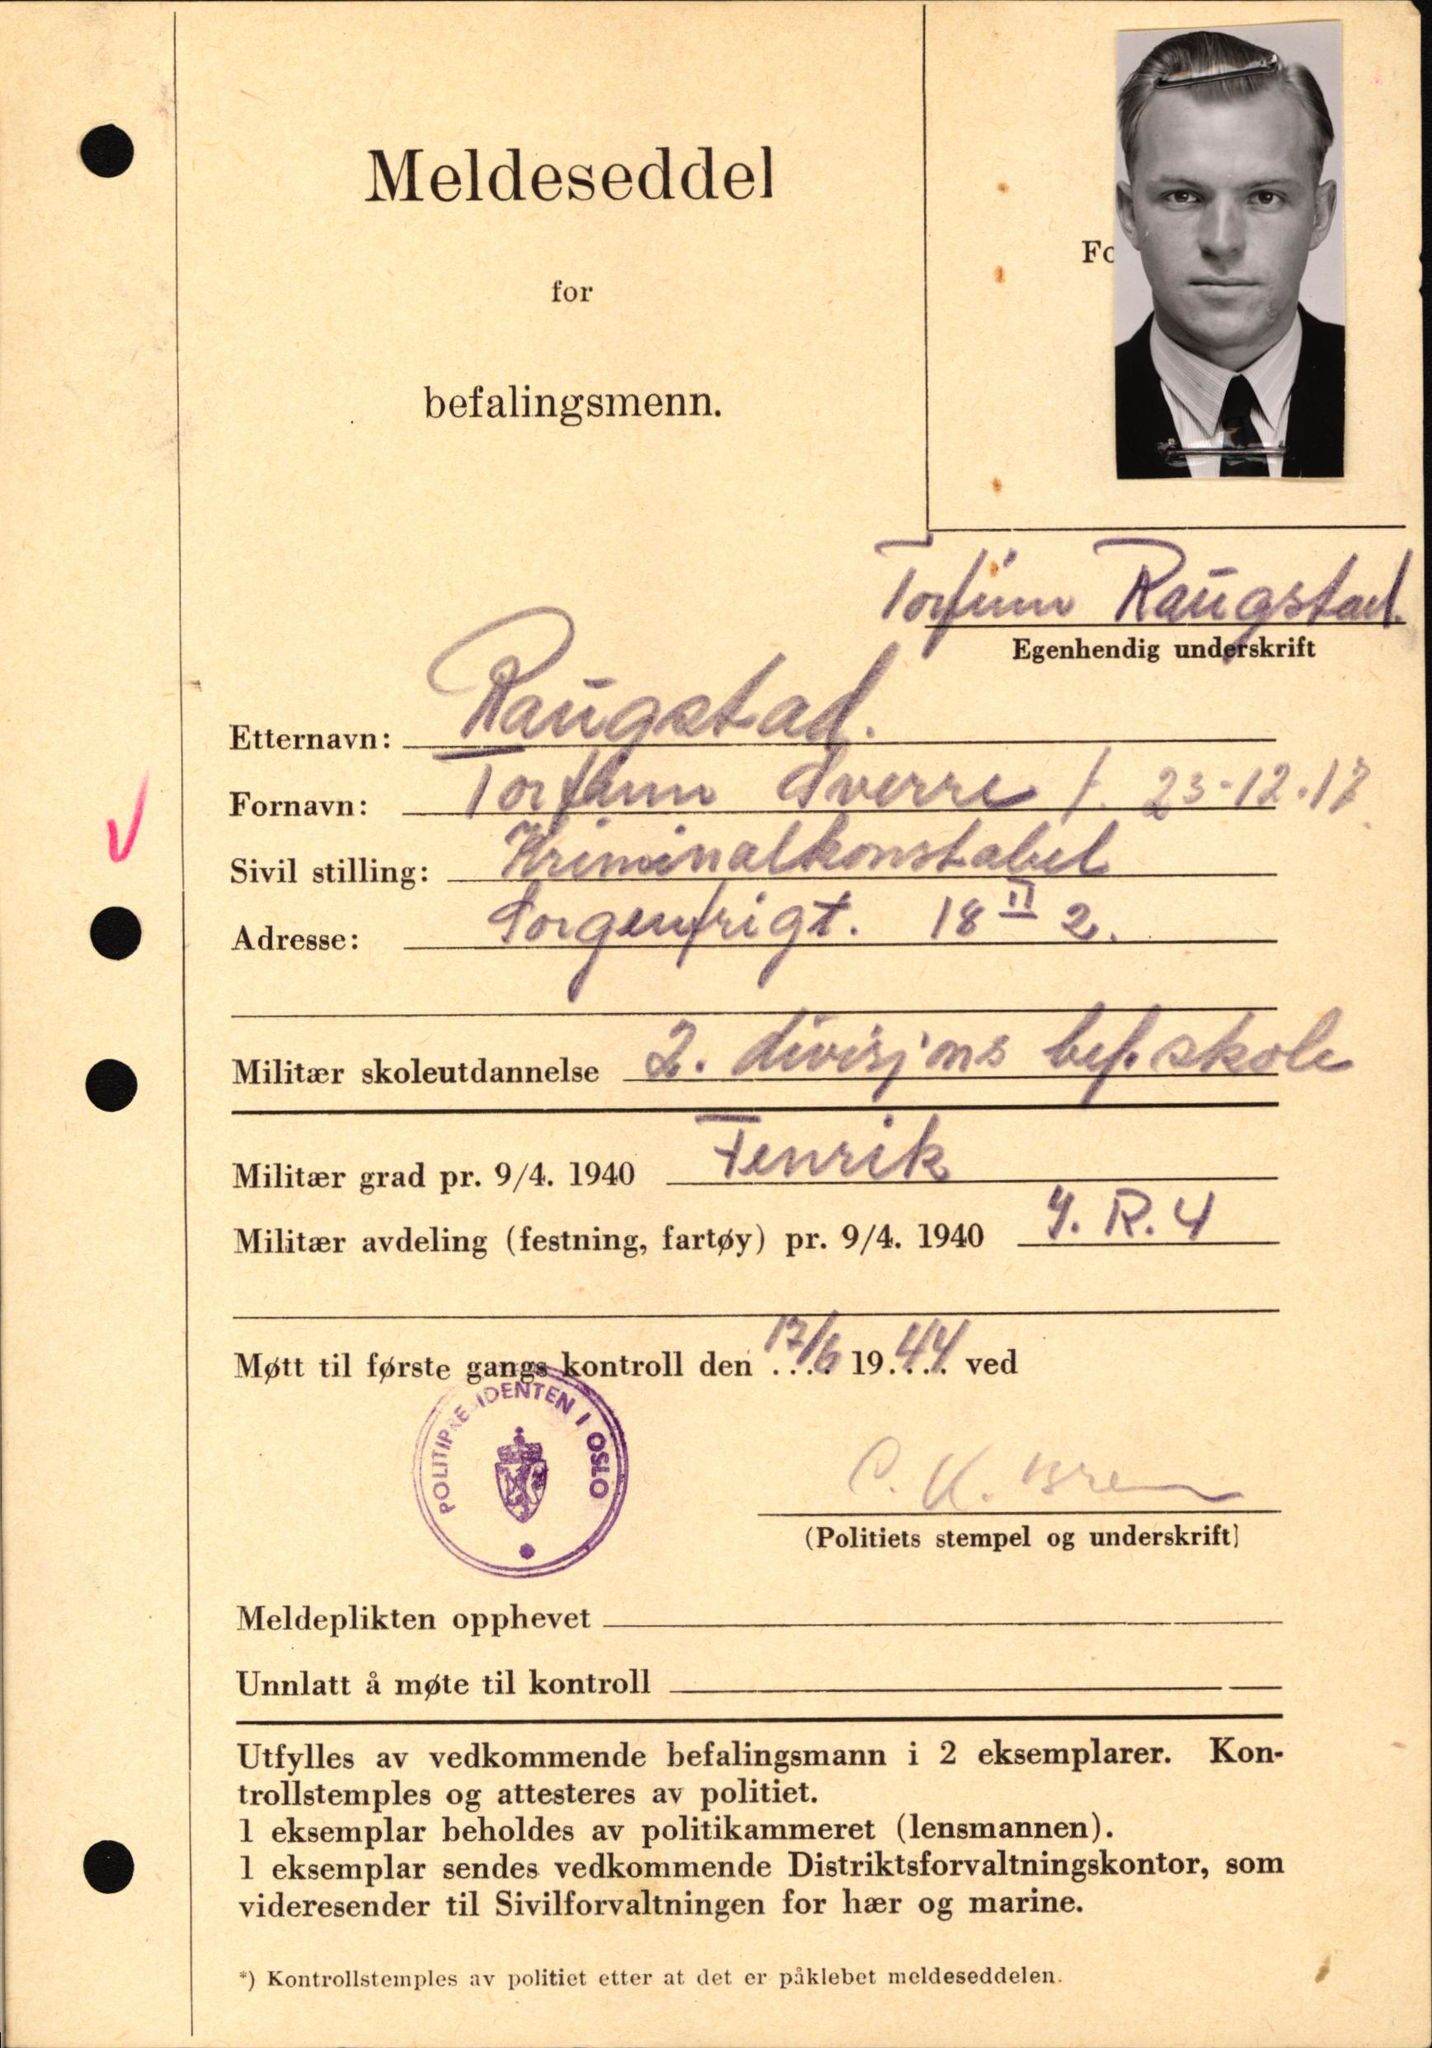 Meldeseddel
for
befalingsmenn.
Fo
Torfinn Raugstad.
Egenhendig underskrift
Etternavn: Raugstad.
Fornavn: Torfinn Sverre f. 23-12.17
Sivil stilling: Kriminalkonstabel
Adresse: Sorgenfrigt. 18 II 2.
Militær skoleutdannelse 2. divisjons bef. skole
Militær grad pr. 9/4. 1940 Fenrik
Militær avdeling (festning, fartøy) pr. 9/4. 1940 I.R.4
Møtt til første gangs kontroll den 17/6 1944 ved
POLITIPRESIDENTEN I OSLO
C. K.
(Politiets stempel og underskrift)
Meldeplikten opphevet
Unnlatt å møte til kontroll
Utfylles av vedkommende befalingsmann i 2 eksemplarer. Kon-
trollstemples og attesteres av politiet.
1 eksemplar beholdes av politikammeret (lensmannen).
1 eksemplar sendes vedkommende Distriktsforvaltningskontor, som
videresender til Sivilforvaltningen for hær og marine.
*) Kontrollstemples av politiet etter at det er påklebet meldeseddelen.